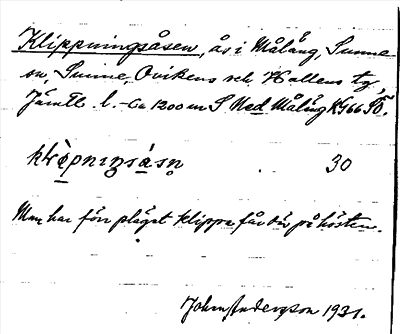 Klippningsåsen, ås i Målång, Sunne
sn, Sunne, Ovikens och Hallens tg
Jämtl. l. - Ca 1200 m S Ned Målång K 566 SÖ.
30
Man har förr plägat klippa får här på hösten.
John Andersson 1931.